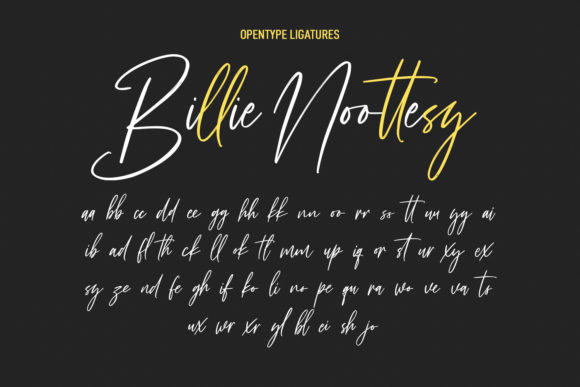 OPENTYPE LIGATURES
Billie Noottesy
aa bb cc dd ee gg hh kk nn oo rr so tt uu yy ai
ib ad fl th ck ll ok ti mm up iq or st ur xy ex
sy ze nd fe gh if ko li no pe qu ra wo ve va ts
ux wr xr yl bl ei sh jo